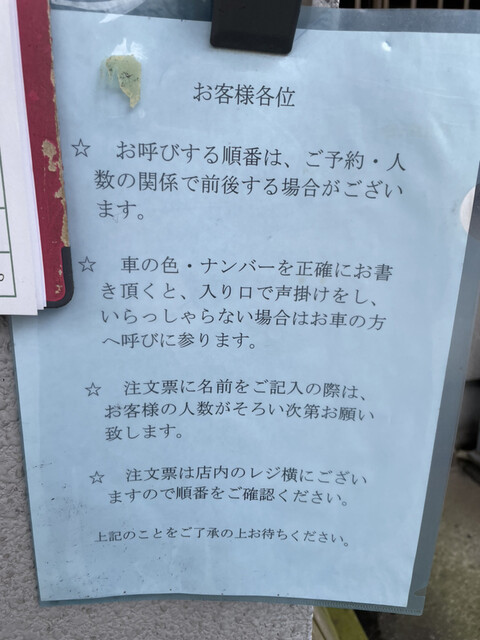 お客様各位
☆　お呼びする順番は、ご予約・人
数の関係で前後する場合がござい
ます。
☆　車の色・ナンバーを正確にお書
き頂くと、入り口で声掛けをし、
いらっしゃらない場合はお車の方
へ呼びに参ります。
☆　注文票に名前をご記入の際は、
お客様の人数がそろい次第お願い
致します。
☆　注文票は店内のレジ横にござい
ますので順番をご確認ください。
上記のことをご了承の上お待ちください。